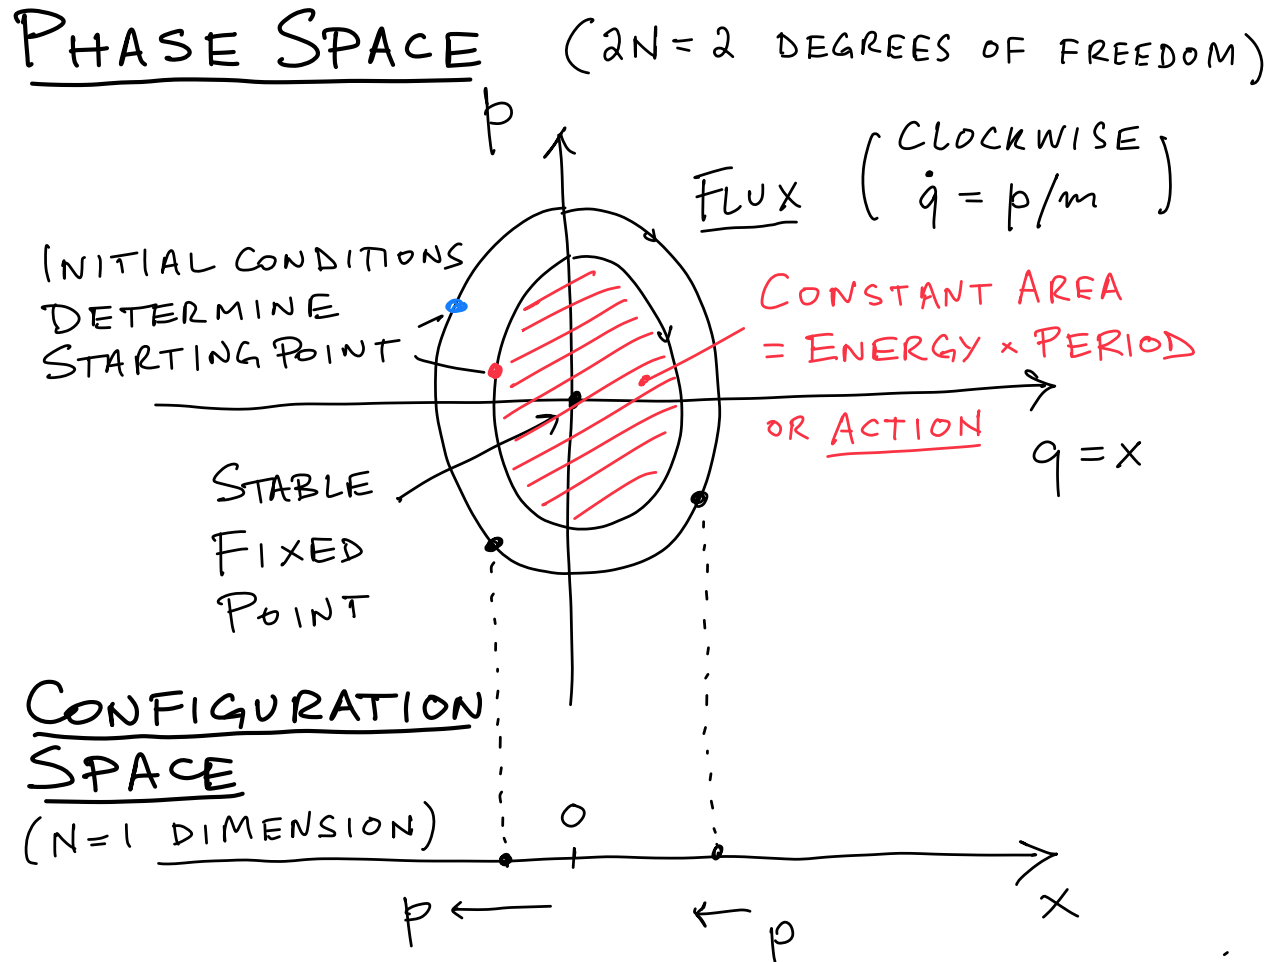 PHASE SPACE (2N = 2 DEGREES OF FREEDOM)
p
FLUX
( CLOCKWISE
q̇ = p/m )
INITIAL CONDITIONS
DETERMINE
STARTING POINT
CONSTANT AREA
= ENERGY × PERIOD
OR ACTION
q = x
STABLE
FIXED
POINT
CONFIGURATION
SPACE
(N=1 DIMENSION)
O
x
p
p